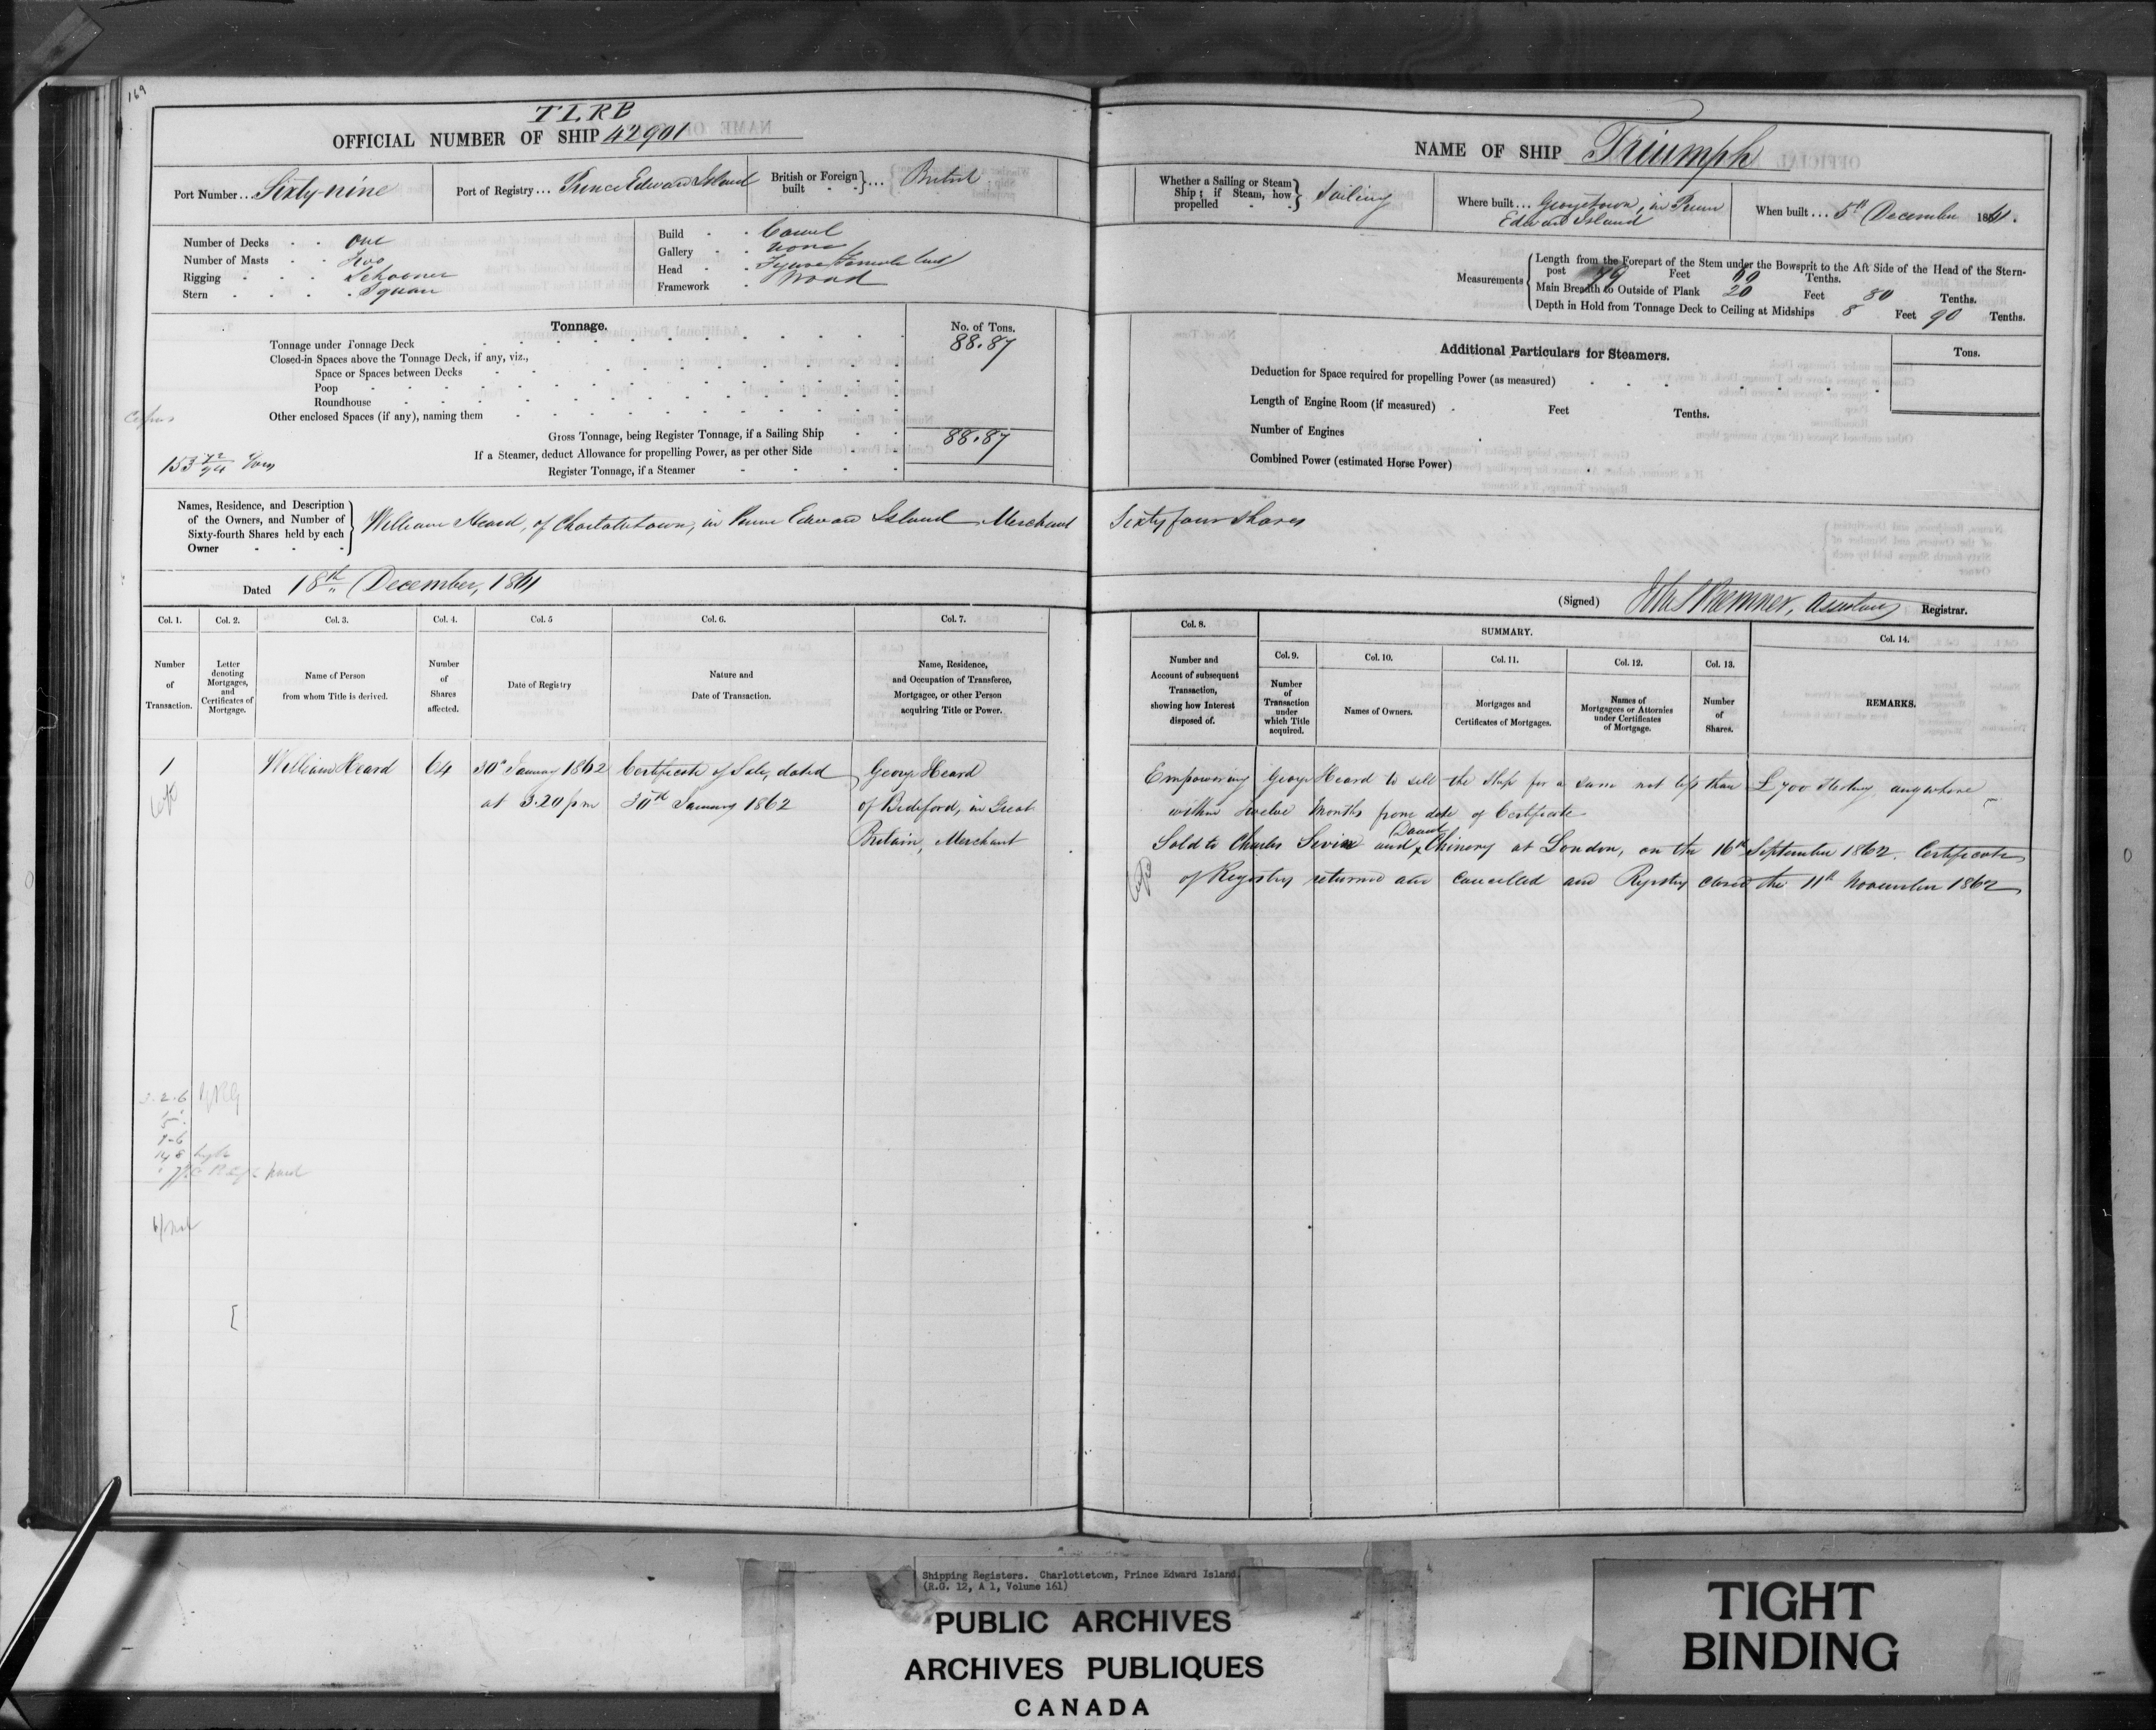 169
TLRB
OFFICIAL NUMBER OF SHIP 42901
Port Number... Sixty-nine
Port of Registry... Prince Edward Island
British or Foreign built }... British
Number of Decks One
Number of Masts Two
Rigging Schooner
Stern Square
Build Carvel
Gallery None
Head Figure Female bust
Framework Wood
Tonnage.
No. of Tons.
Tonnage under Tonnage Deck 88.87
Closed-in Spaces above the Tonnage Deck, if any, viz.,
Space or Spaces between Decks
Poop
Roundhouse
Other enclosed Spaces (if any), naming them
Gross Tonnage, being Register Tonnage, if a Sailing Ship 88.87
If a Steamer, deduct Allowance for propelling Power, as per other Side
Register Tonnage, if a Steamer
153 72/94 Tons
Names, Residence, and Description of the Owners, and Number of Sixty-fourth Shares held by each Owner
William Heard, of Charlottetown, in Prince Edward Island Merchant
Dated 18th December, 1861
Col. 1. Col. 2. Col. 3. Col. 4. Col. 5 Col. 6. Col. 7.
Number of Transaction.
Letter denoting Mortgages, and Certificates of Mortgage.
Name of Person from whom Title is derived.
Number of Shares affected.
Date of Registry
Nature and Date of Transaction.
Name, Residence, and Occupation of Transferee, Mortgagee, or other Person acquiring Title or Power.
1 William Heard 64 30th January 1862 Certificate of Sale, dated George Heard
at 3.20 pm 30th January 1862 of Bideford, in Great
Britain, Merchant
NAME OF SHIP Triumph
Whether a Sailing or Steam Ship; if Steam, how propelled } Sailing
Where built... Georgetown, in Prince
Edward Island
When built... 5th December 1861.
Measurements
Length from the Forepart of the Stem under the Bowsprit to the Aft Side of the Head of the Stern-
post 79 Feet 60 Tenths.
Main Breadth to Outside of Plank 20 Feet 80 Tenths.
Depth in Hold from Tonnage Deck to Ceiling at Midships 8 Feet 90 Tenths.
Additional Particulars for Steamers.
Tons.
Deduction for Space required for propelling Power (as measured)
Length of Engine Room (if measured) Feet Tenths.
Number of Engines
Combined Power (estimated Horse Power)
Sixty four Shares
(Signed) Bremner, Assistant Registrar.
Col. 8.
SUMMARY.
Col. 9. Col. 10. Col. 11. Col. 12. Col. 13. Col. 14.
Number and Account of subsequent Transaction, showing how Interest disposed of.
Number of Transaction under which Title acquired.
Names of Owners.
Mortgages and Certificates of Mortgages.
Names of Mortgagees or Attornies under Certificates of Mortgage.
Number of Shares.
REMARKS.
Empowering George Heard to sell the Ship for a sum not less than £700 Sterling anywhere
within twelve Months from date of Certificate
Sold to Charles and David Chinery at London, on the 16th September 1862. Certificate
of Registry returned and cancelled and Registry closed the 11th November 1862
Shipping Registers. Charlottetown, Prince Edward Island.
(R.G. 12, A 1, Volume 161)
PUBLIC ARCHIVES
ARCHIVES PUBLIQUES
CANADA
TIGHT
BINDING